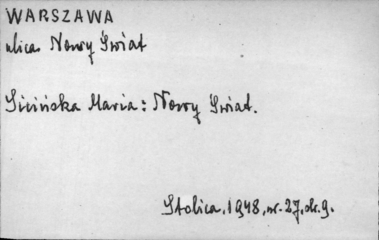 WARSZAWA
ulica Nowy Świat
Sicińska Maria: Nowy Świat.
Stolica, 1948, nr. 27, str. 9.